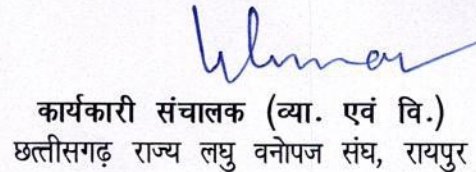 कार्यकारी संचालक (व्या. एवं वि.)
छत्तीसगढ़ राज्य लघु वनोपज संघ, रायपुर